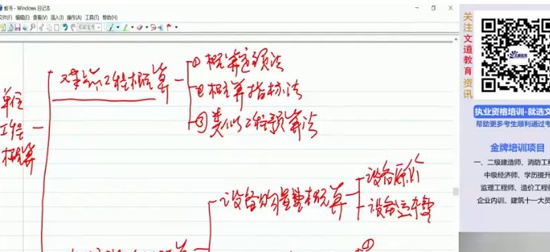 帮书 - Windows 日记本
文件(F) 编辑(E) 查看(V) 插入(I) 操作(A) 工具(T) 帮助(H)
单位
工程
概算
建筑工程概算
① 概算定额法
② 概算指标法
③ 类似工程预算法
设备购置费概算
设备原价
设备运杂费
①
关注
文道
教育
资讯
执业资格培训-就选文
帮助更多考生顺利通过考
金牌培训项目
一、二级建造师、消防工
中级经济师、学历提升
监理工程师、造价工程
企业内训、建筑十一大员